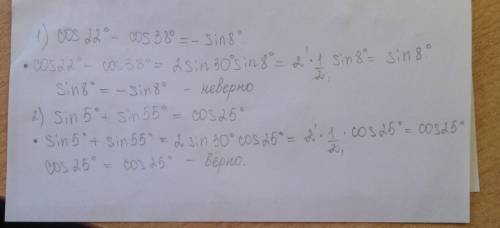 1) cos 22° - cos 38° = - sin 8°
• cos 22° - cos 38° = 2 sin 30° sin 8° = 2 · 1/2 sin 8° = sin 8°
sin 8° = - sin 8° - неверно
2) sin 5° + sin 55° = cos 25°
• sin 5° + sin 55° = 2 sin 30° cos 25° = 2 · 1/2 · cos 25° = cos 25°
cos 25° = cos 25° - верно.